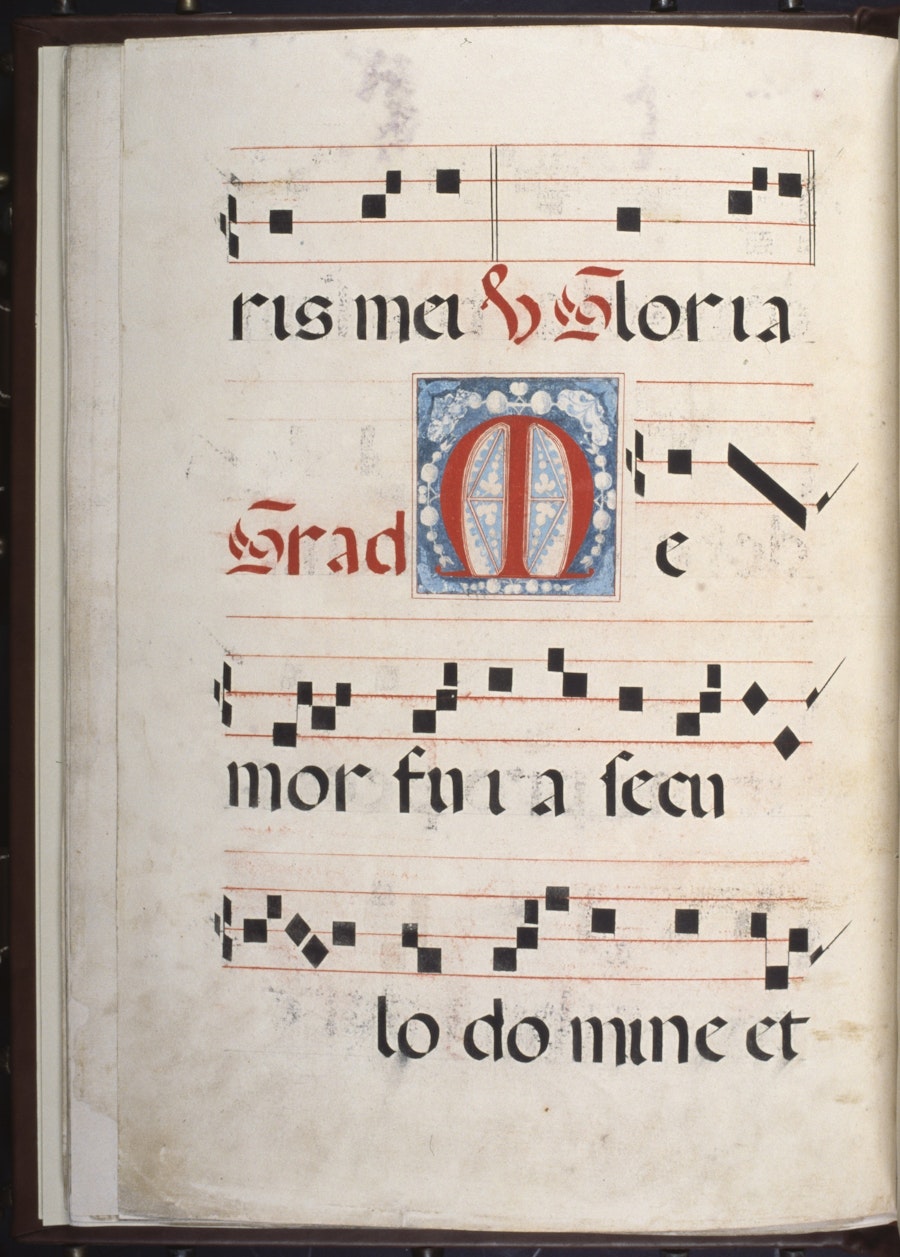 ris mei ℣ Gloria
Grad Me
mor fui a ſecu
lo do mine et